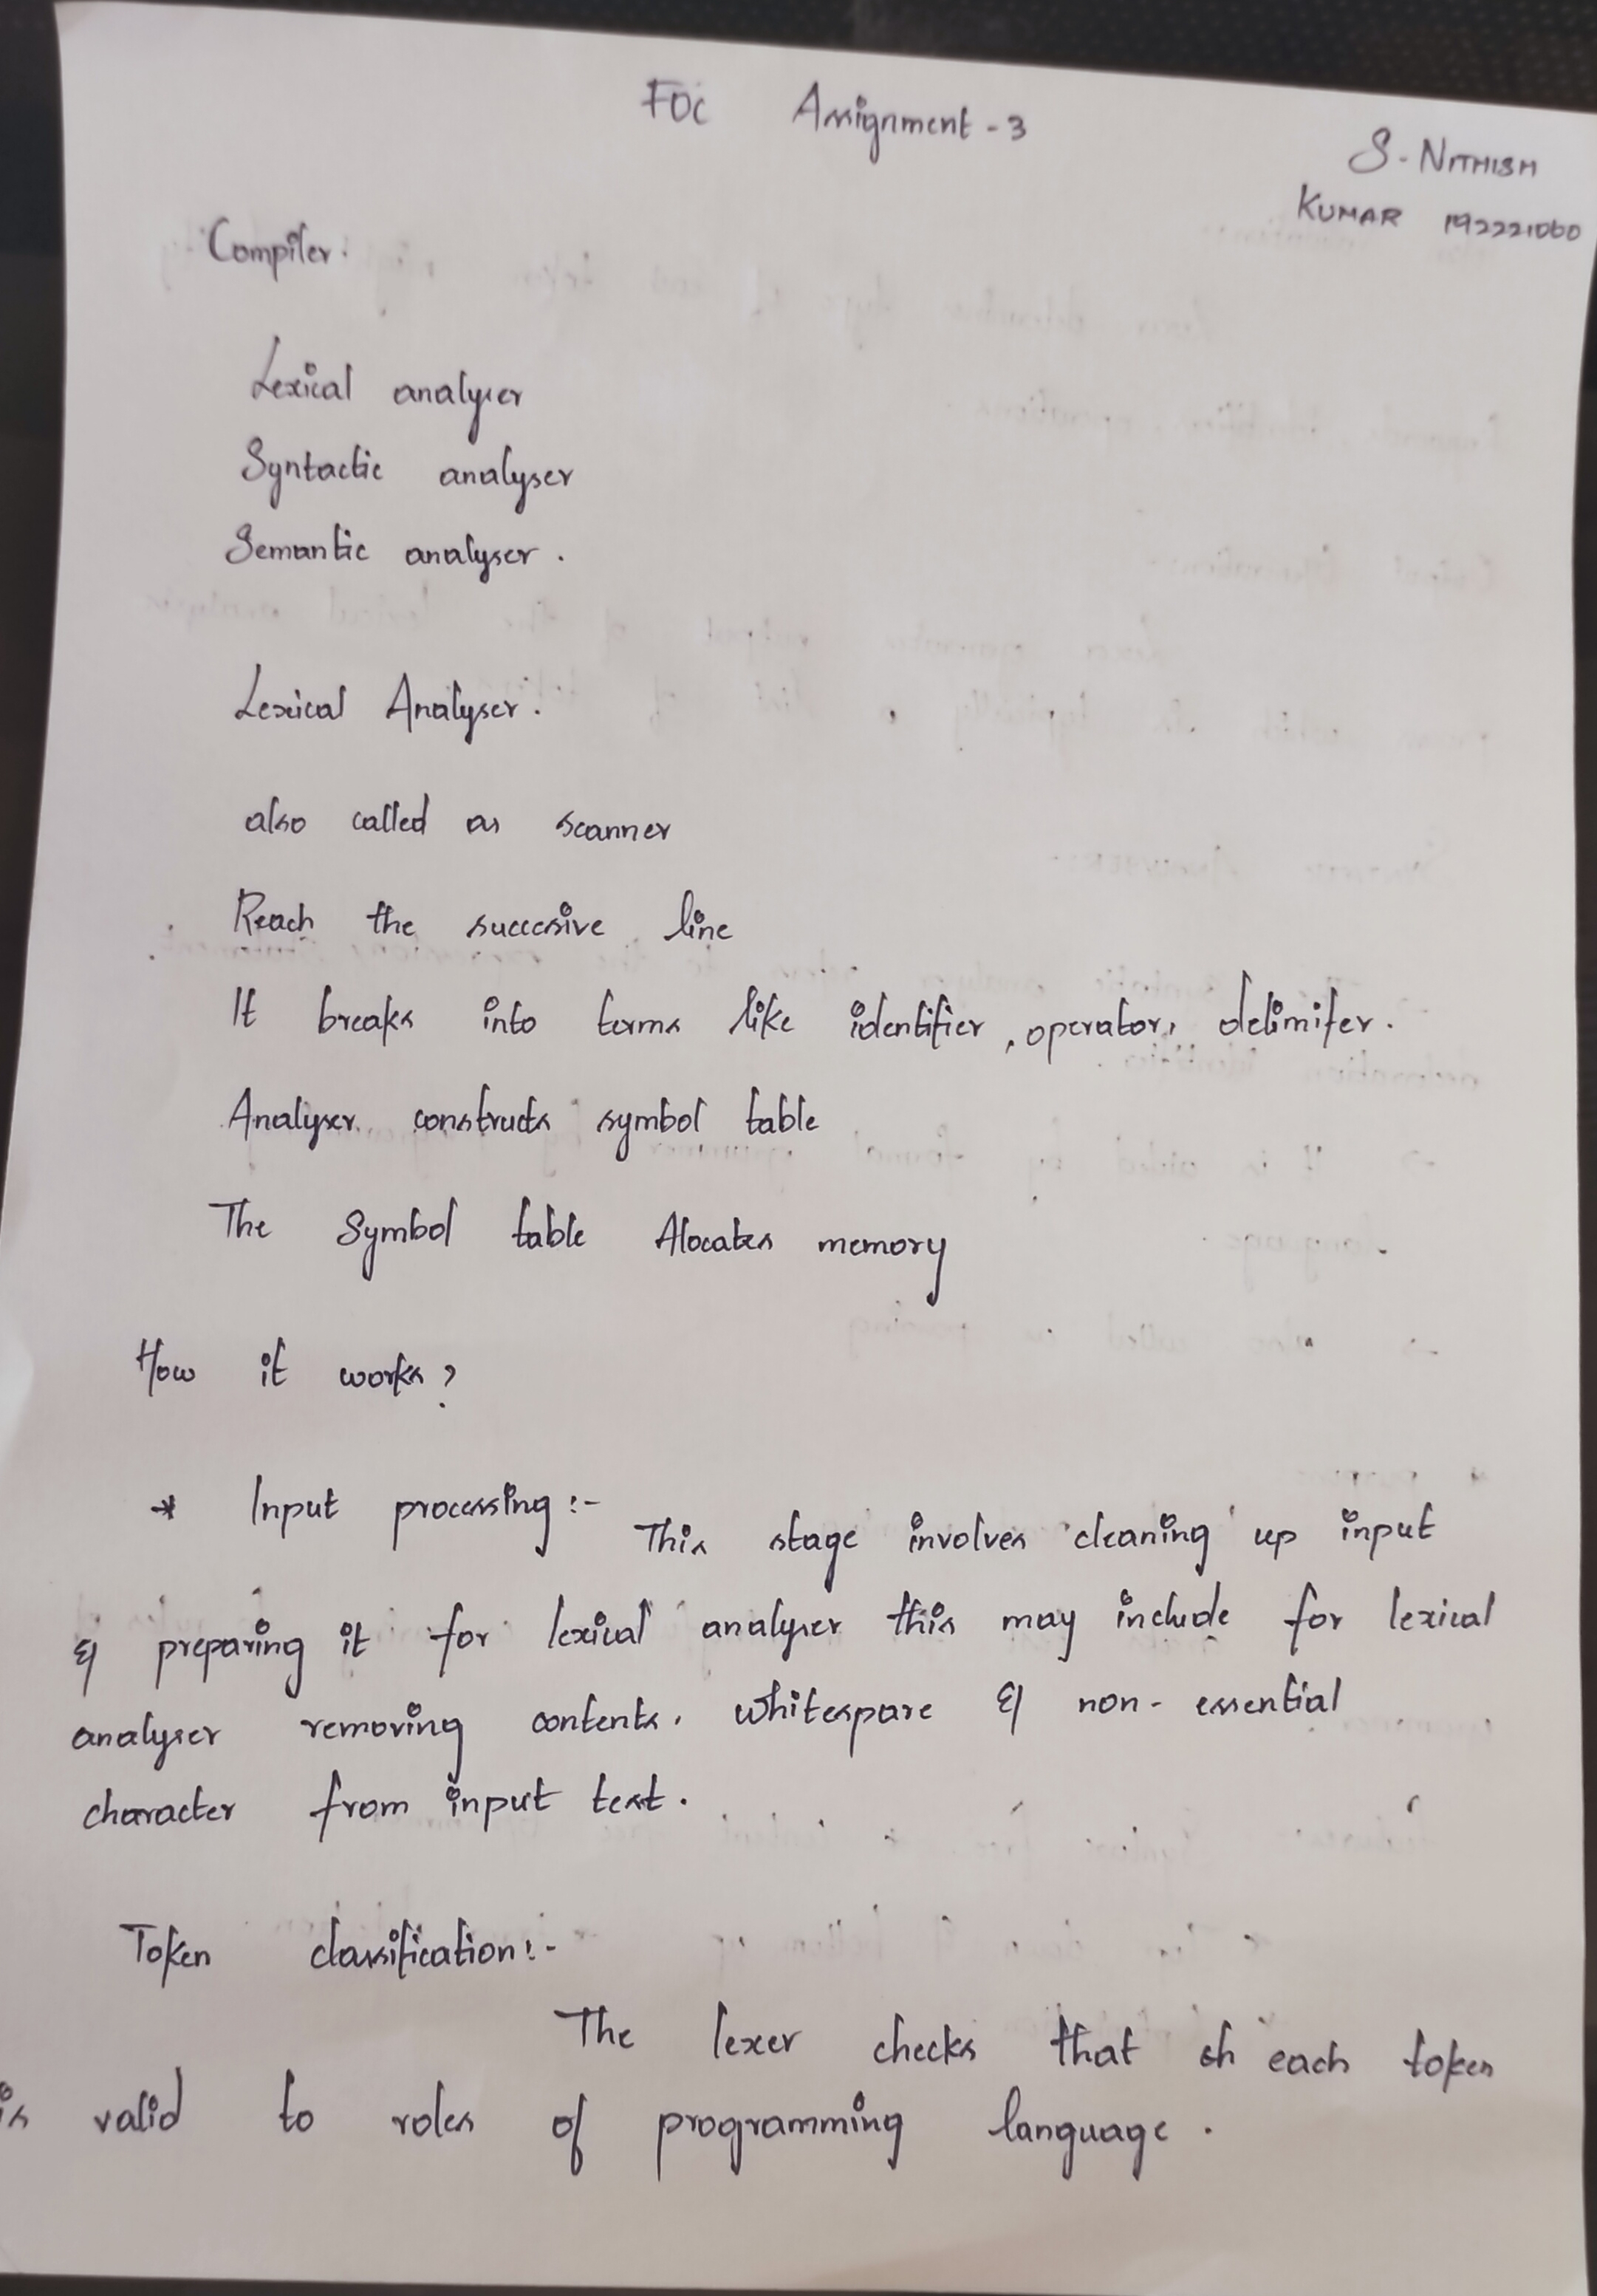 FOC Assignment - 3
S. NITHISH
KUMAR 192221060
Compiler.
Lexical analyser
Syntactic analyser
Semantic analyser.
Lexical Analyser.
also called as scanner
Reach the succesive line
It breaks into terms like identifier, operator, delimiter.
Analyser constructs symbol table
The Symbol table Alocates memory
How it works?
* Input processing :- This stage involves cleaning up input
& preparing it for lexical analyser this may include for lexical
analyser removing contents, whitespare & non-essential
character from input text.
Token classification :-
The lexer checks that each token
is valid to roles of programming language.